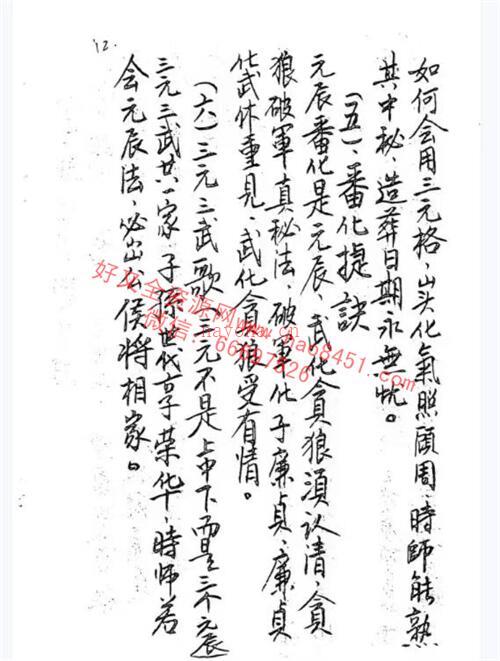 12.
如何会用三元格，山头化氣照顧周，時師能熟
其中秘，造葬日期永無忧。
（五）、番化提訣
元辰番化是元辰，武化貪狼須认清，貪
狼破軍真秘法，破軍化子廉貞，廉貞
化武休重見，武化貪狼受有情。
（六）三元三武歌：三元不是上中下而是三个元辰
三元三武共一家，子孫世代享荣华，時师若
会元辰法，必出公侯將相家。
好友全资源网
hao8451.com
微信：66697826